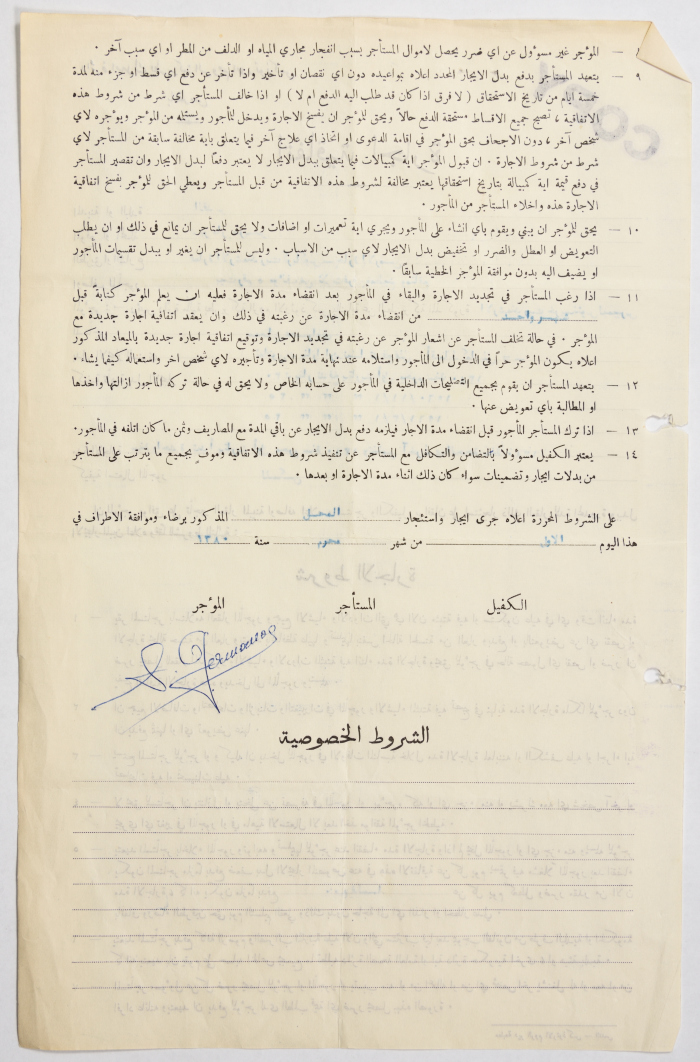 ٨ — المؤجر غير مسؤول عن اي ضرر يحصل لاموال المستأجر بسبب انفجار مجاري المياه او الدلف من المطر او اي سبب آخر .
٩ — يتعهد المستأجر بدفع بدل الايجار المحدد اعلاه بمواعيده دون اي نقصان او تأخير واذا تأخر عن دفع اي قسط او جزء منه لمدة
خمسة ايام من تاريخ الاستحقاق ( لا فرق اذا كان قد طلب اليه الدفع ام لا ) او اذا خالف المستأجر أي شرط من شروط هذه
الاتفاقية ، تصبح جميع الاقساط مستحقة الدفع حالاً ويحق للمؤجر ان يفسخ الاجارة ويدخل للمأجور ويستلمه من المؤجر ويؤجره لاي
شخص آخر ، دون الاجحاف بحق المؤجر في اقامة الدعوى او اتخاذ اي علاج آخر فيما يتعلق بأية مخالفة سابقة من المستأجر لاي
شرط من شروط الاجارة . ان قبول المؤجر اية كمبيالات فيما يتعلق ببدل الايجار لا يعتبر دفعاً لبدل الايجار وان تقصير المستأجر
في دفع قيمة اية كمبيالة بتاريخ استحقاقها يعتبر مخالفة لشروط هذه الاتفاقية من قبل المستأجر ويعطي الحق للمؤجر بفسخ اتفاقية
الاجارة هذه واخلاء المستأجر من المأجور .
١٠ — يحق للمؤجر ان يبني ويقوم باي انشاء على المأجور ويجري اية تعميرات او اضافات ولا يحق للمستأجر ان يمانع في ذلك او ان يطلب
التعويض او العطل والضرر او تخفيض بدل الايجار لاي سبب من الاسباب . وليس للمستأجر ان يغير او يبدل تقسيمات المأجور
او يضيف اليه بدون موافقة المؤجر الخطية سابقاً .
١١ — اذا رغب المستأجر في تجديد الاجارة والبقاء في المأجور بعد انقضاء مدة الاجارة فعليه ان يعلم المؤجر كتابةً قبل
شهر واحد من انقضاء مدة الاجارة عن رغبته في ذلك وان يعقد اتفاقية اجارة جديدة مع
المؤجر . في حالة تخلف المستأجر عن اشعار المؤجر عن رغبته في تجديد الاجارة وتوقيع اتفاقية اجارة جديدة بالميعاد المذكور
اعلاه يكون المؤجر حراً في الدخول الى المأجور واستلامه عند نهاية مدة الاجارة وتأجيره لاي شخص اخر واستعماله كيفما يشاء .
١٢ — يتعهد المستأجر ان يقوم بجميع التصليحات الداخلية في المأجور على حسابه الخاص ولا يحق له في حالة تركه المأجور ازالتها واخذها
او المطالبة باي تعويض عنها .
١٣ — اذا ترك المستأجر المأجور قبل انقضاء مدة الاجار فيلزمه دفع بدل الايجار عن باقي المدة مع المصاريف وثمن ما كان اتلفه في المأجور.
١٤ — يعتبر الكفيل مسؤولاً بالتضامن والتكافل مع المستأجر عن تنفيذ شروط هذه الاتفاقية وموفٍ بجميع ما يترتب على المستأجر
من بدلات ايجار وتضمينات سواء كان ذلك اثناء مدة الاجارة او بعدها .
على الشروط المحررة اعلاه جرى ايجار واستئجار المحل المذكور برضاء وموافقة الاطراف في
هذا اليوم الاول من شهر محرم سنة ١٣٨٠
الكفيل المستأجر المؤجر
الشروط الخصوصية